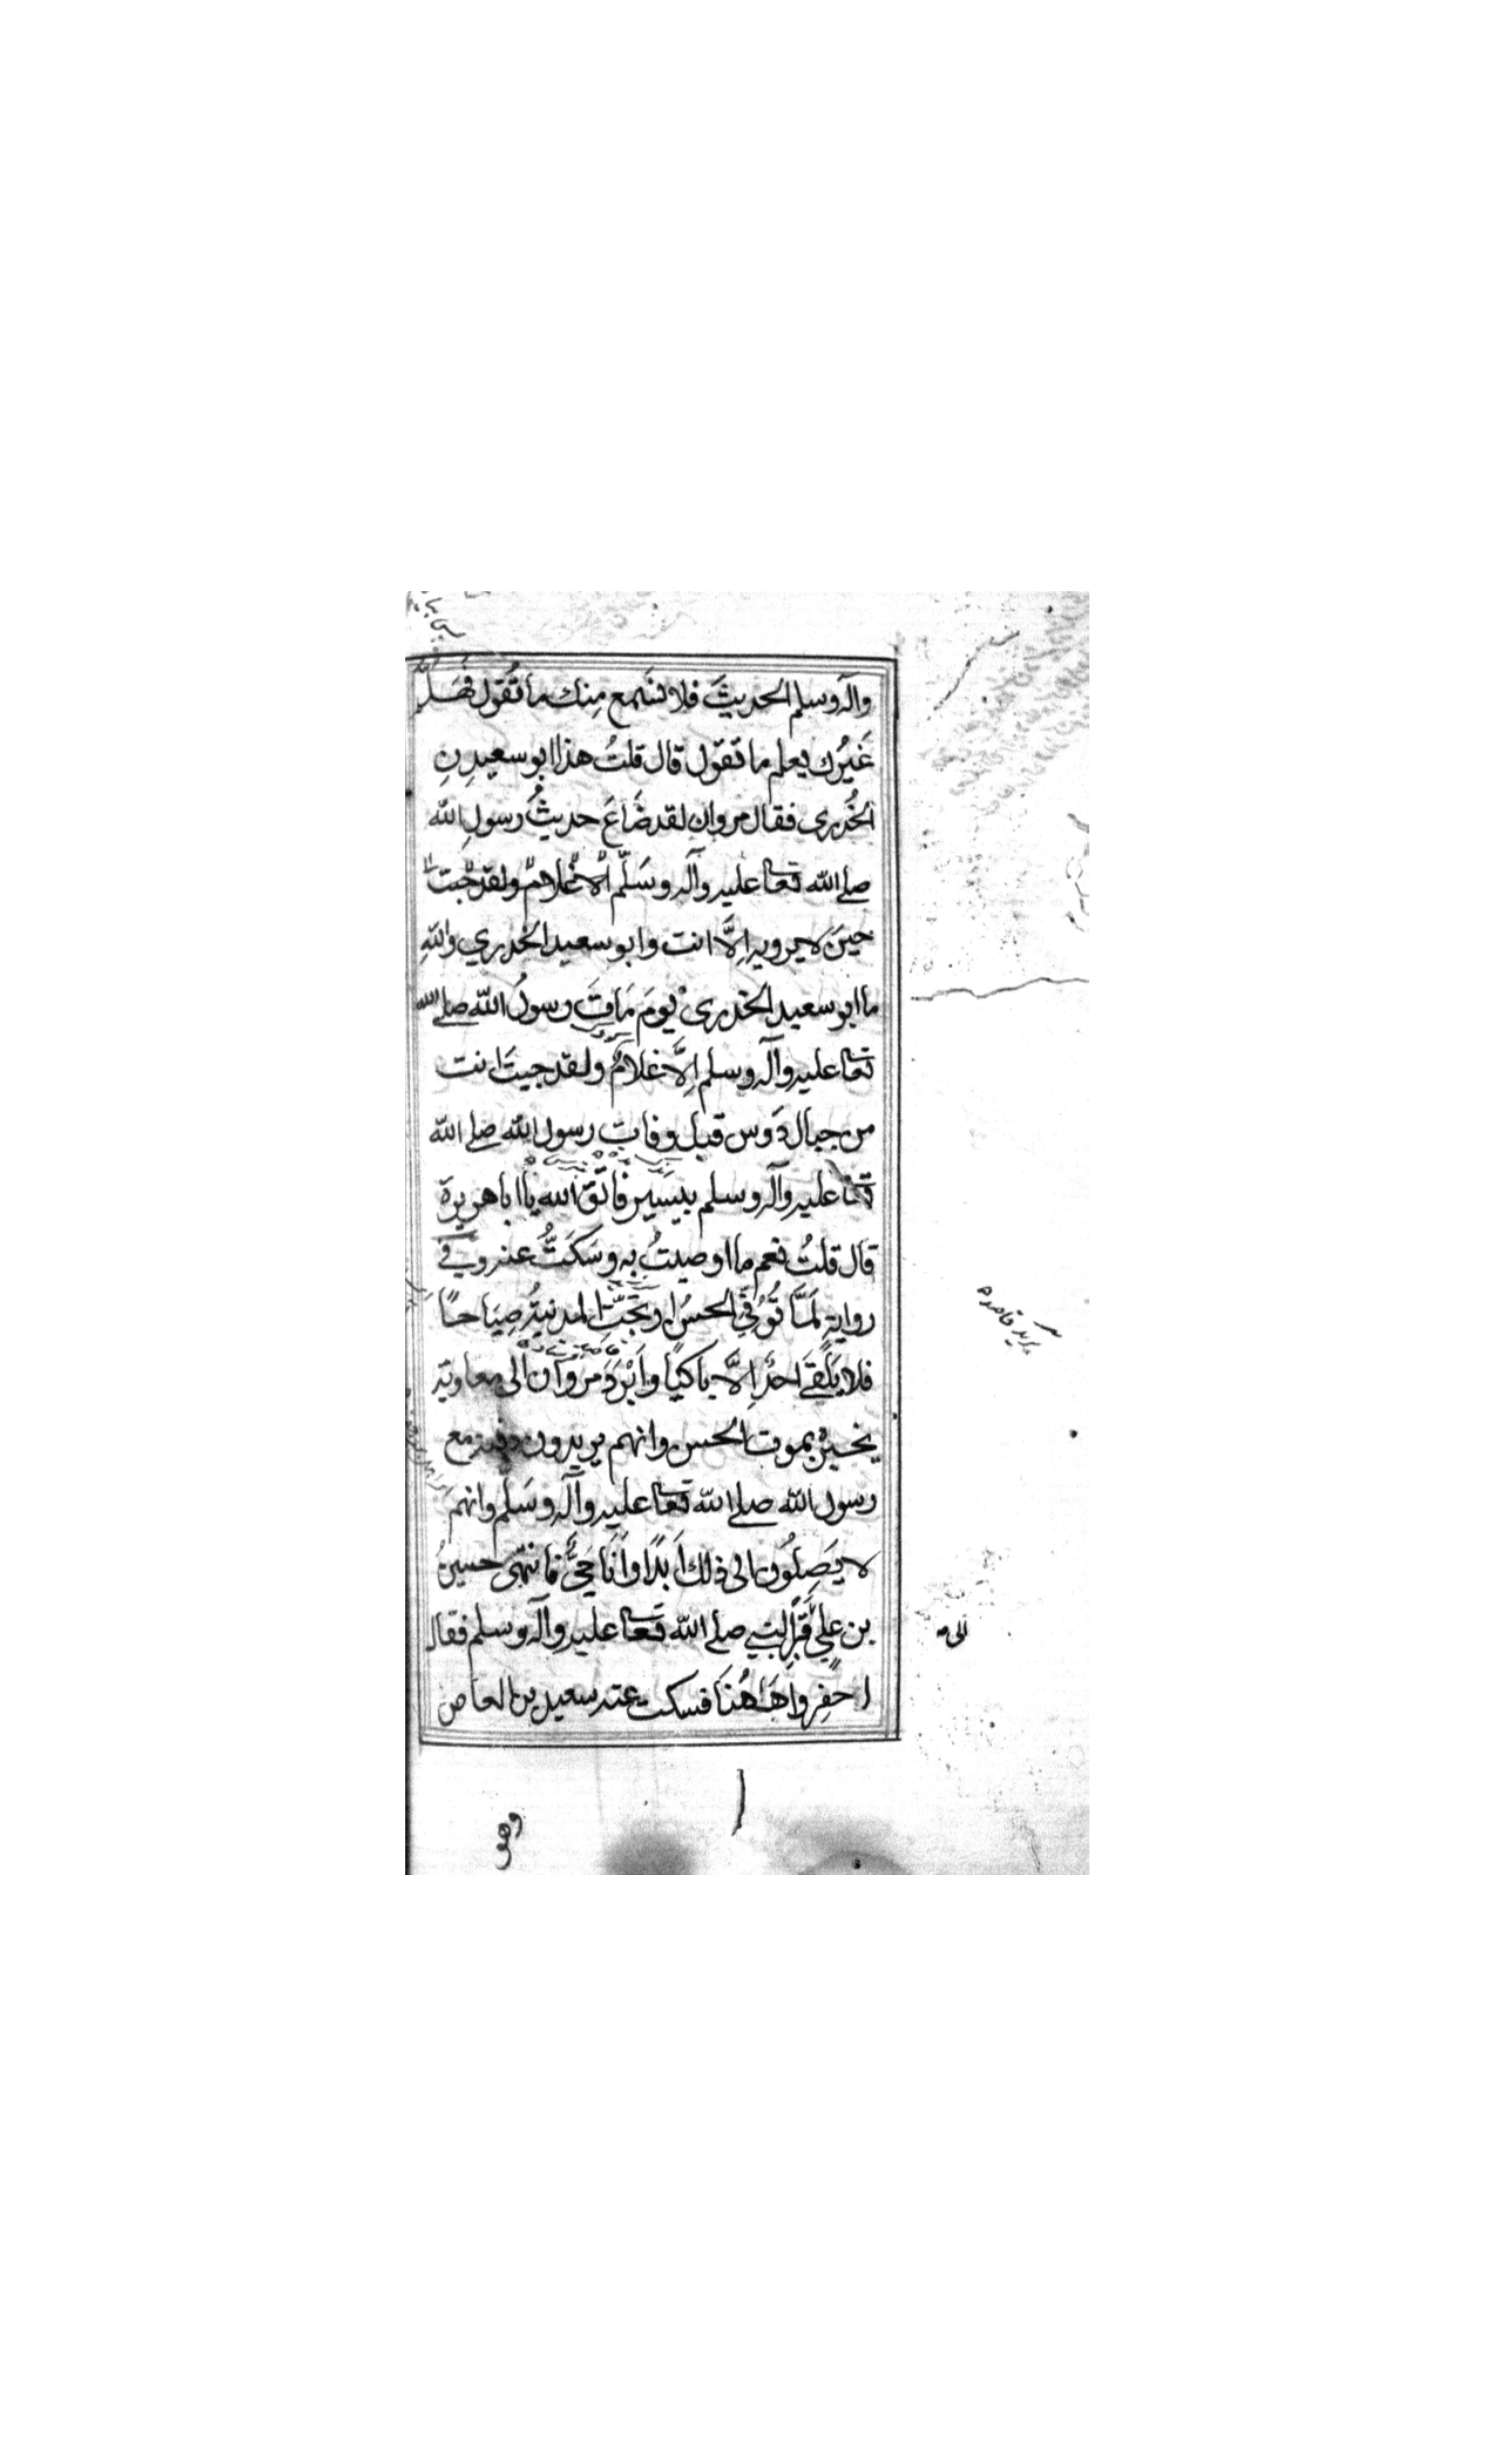 وآله وسلم الحديث فلا نسمع منك ما تقول فهل
غيرك يعلم ما تقول قال قلت هذا ابو سعيدن
الخدري فقال مروان لقد ضاع حديث رسول الله
صلى الله تعا عليه وآله وسلم
حين لا يرويه الا انت وابو سعيد الخدري والله
ما ابو سعيد الخدري يوم مات رسول الله صلى الله
تعا عليه وآله وسلم الا غلام ولقد جيت انت
من جبال دوس قبل وفات رسول الله صلى الله
تعا عليه وآله وسلم بيسير فاتق الله يا ابا هريرة
قال قلت نعم ما اوصيت به وسكت عنه وفي
رواية لما توفي الحسن ارتجت المدينة صياحا
فلا يلقى احد الا باكيا وابرد مروان الى معاوية
يخبره بموت الحسن وانهم يريدون دفنه مع
رسول الله صلى الله تعا عليه وآله وسلم وانهم
لا يصلون الى ذلك ابدا وانا حي فانتهى حسين
بن علي قبر النبي صلى الله تعا عليه وآله وسلم فقال
احفروا هاهنا فسكت عنه سعيد بن العاص
الى
وهو